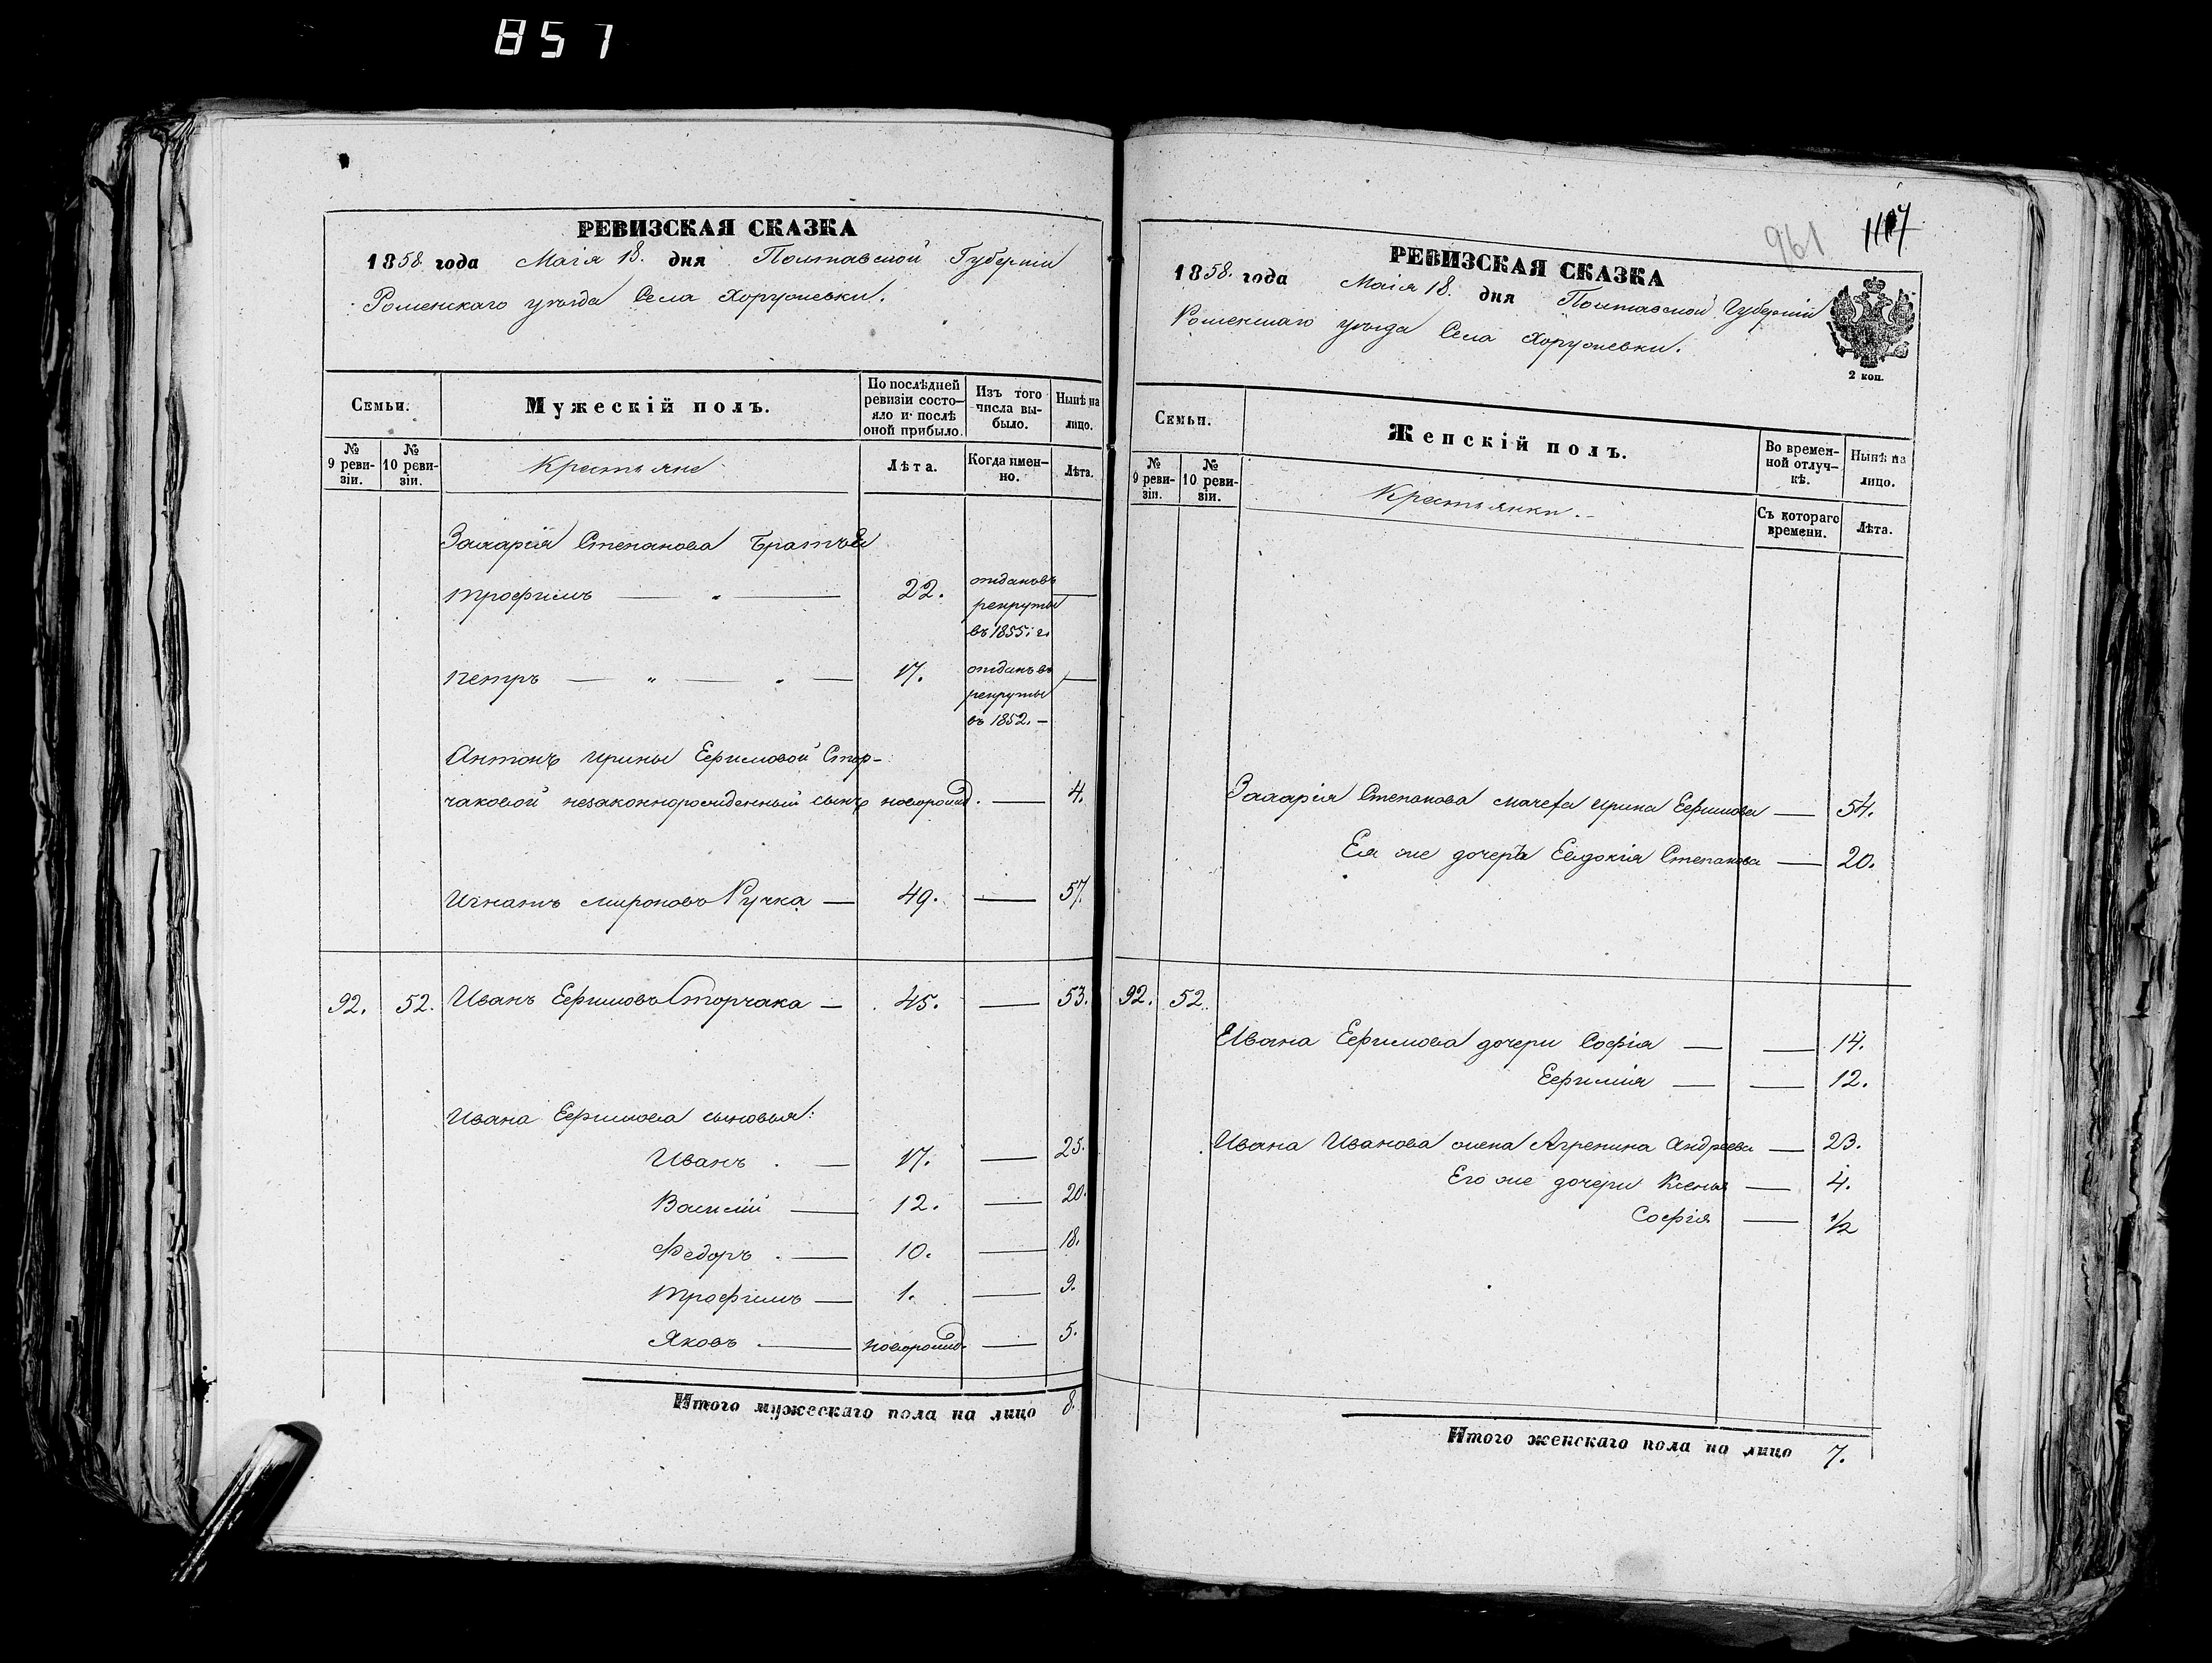 857
РЕВИЗСКАЯ СКАЗКА
1858 года Маія 18. дня Полтавской Губерніи
Роменскаго уѣзда Села Хоружевки.
Семьи.
Мужескій полъ.
По послѣдней ревизіи состо-яло и послѣ оной прибыло.
Изъ того числа вы-было.
Нынѣ на лицо.
№ 9 реви-зіи.
№ 10 реви-зіи.
Крестьяне
Лѣта.
Когда имен-но.
Лѣта.
Захарія Степанова Братья
Трофимъ — " — 22. отданъ въ рекруты въ 1855 г. —
Петръ — " — " — 17. отданъ въ рекруты въ 1852. — —
Антонъ Ирины Ефимовой Стор-
чаковой незаконнорожденный сынъ новорожд. — 4.
Игнатъ Мироновъ Ручка — 49. — 57.
92. 52. Иванъ Ефимовъ Сторчака — 45. — 53.
Ивана Ефимова сыновья:
Иванъ . — 17. — 25.
Василій — 12. — 20.
Федоръ . — 10. — 18.
Трофимъ — 1. — 9.
Яковъ . — новорожд. — 5.
Итого мужескаго пола на лицо 8.
961
РЕВИЗСКАЯ СКАЗКА
1858. года Маія 18. дня Полтавской Губерніи
Роменскаго уѣзда Села Хоружевки.
2 коп.
Семьи.
Женскій полъ.
Во времен-ной отлуч-кѣ.
Нынѣ на лицо.
№ 9 реви-зіи.
№ 10 реви-зіи.
Крестьянки.
Съ котораго времени.
Лѣта.
Захарія Степанова мачеха Ирина Ефимова — 54.
Ея же дочерь Евдокія Степанова — 20.
92. 52.
Ивана Ефимова дочери Софія — — 14.
Ефимія — — 12.
Ивана Иванова жена Агрепина Андреева — 23.
Его же дочери Ксенья — 4.
Софія — 1/2
Итого женскаго пола на лицо 7.